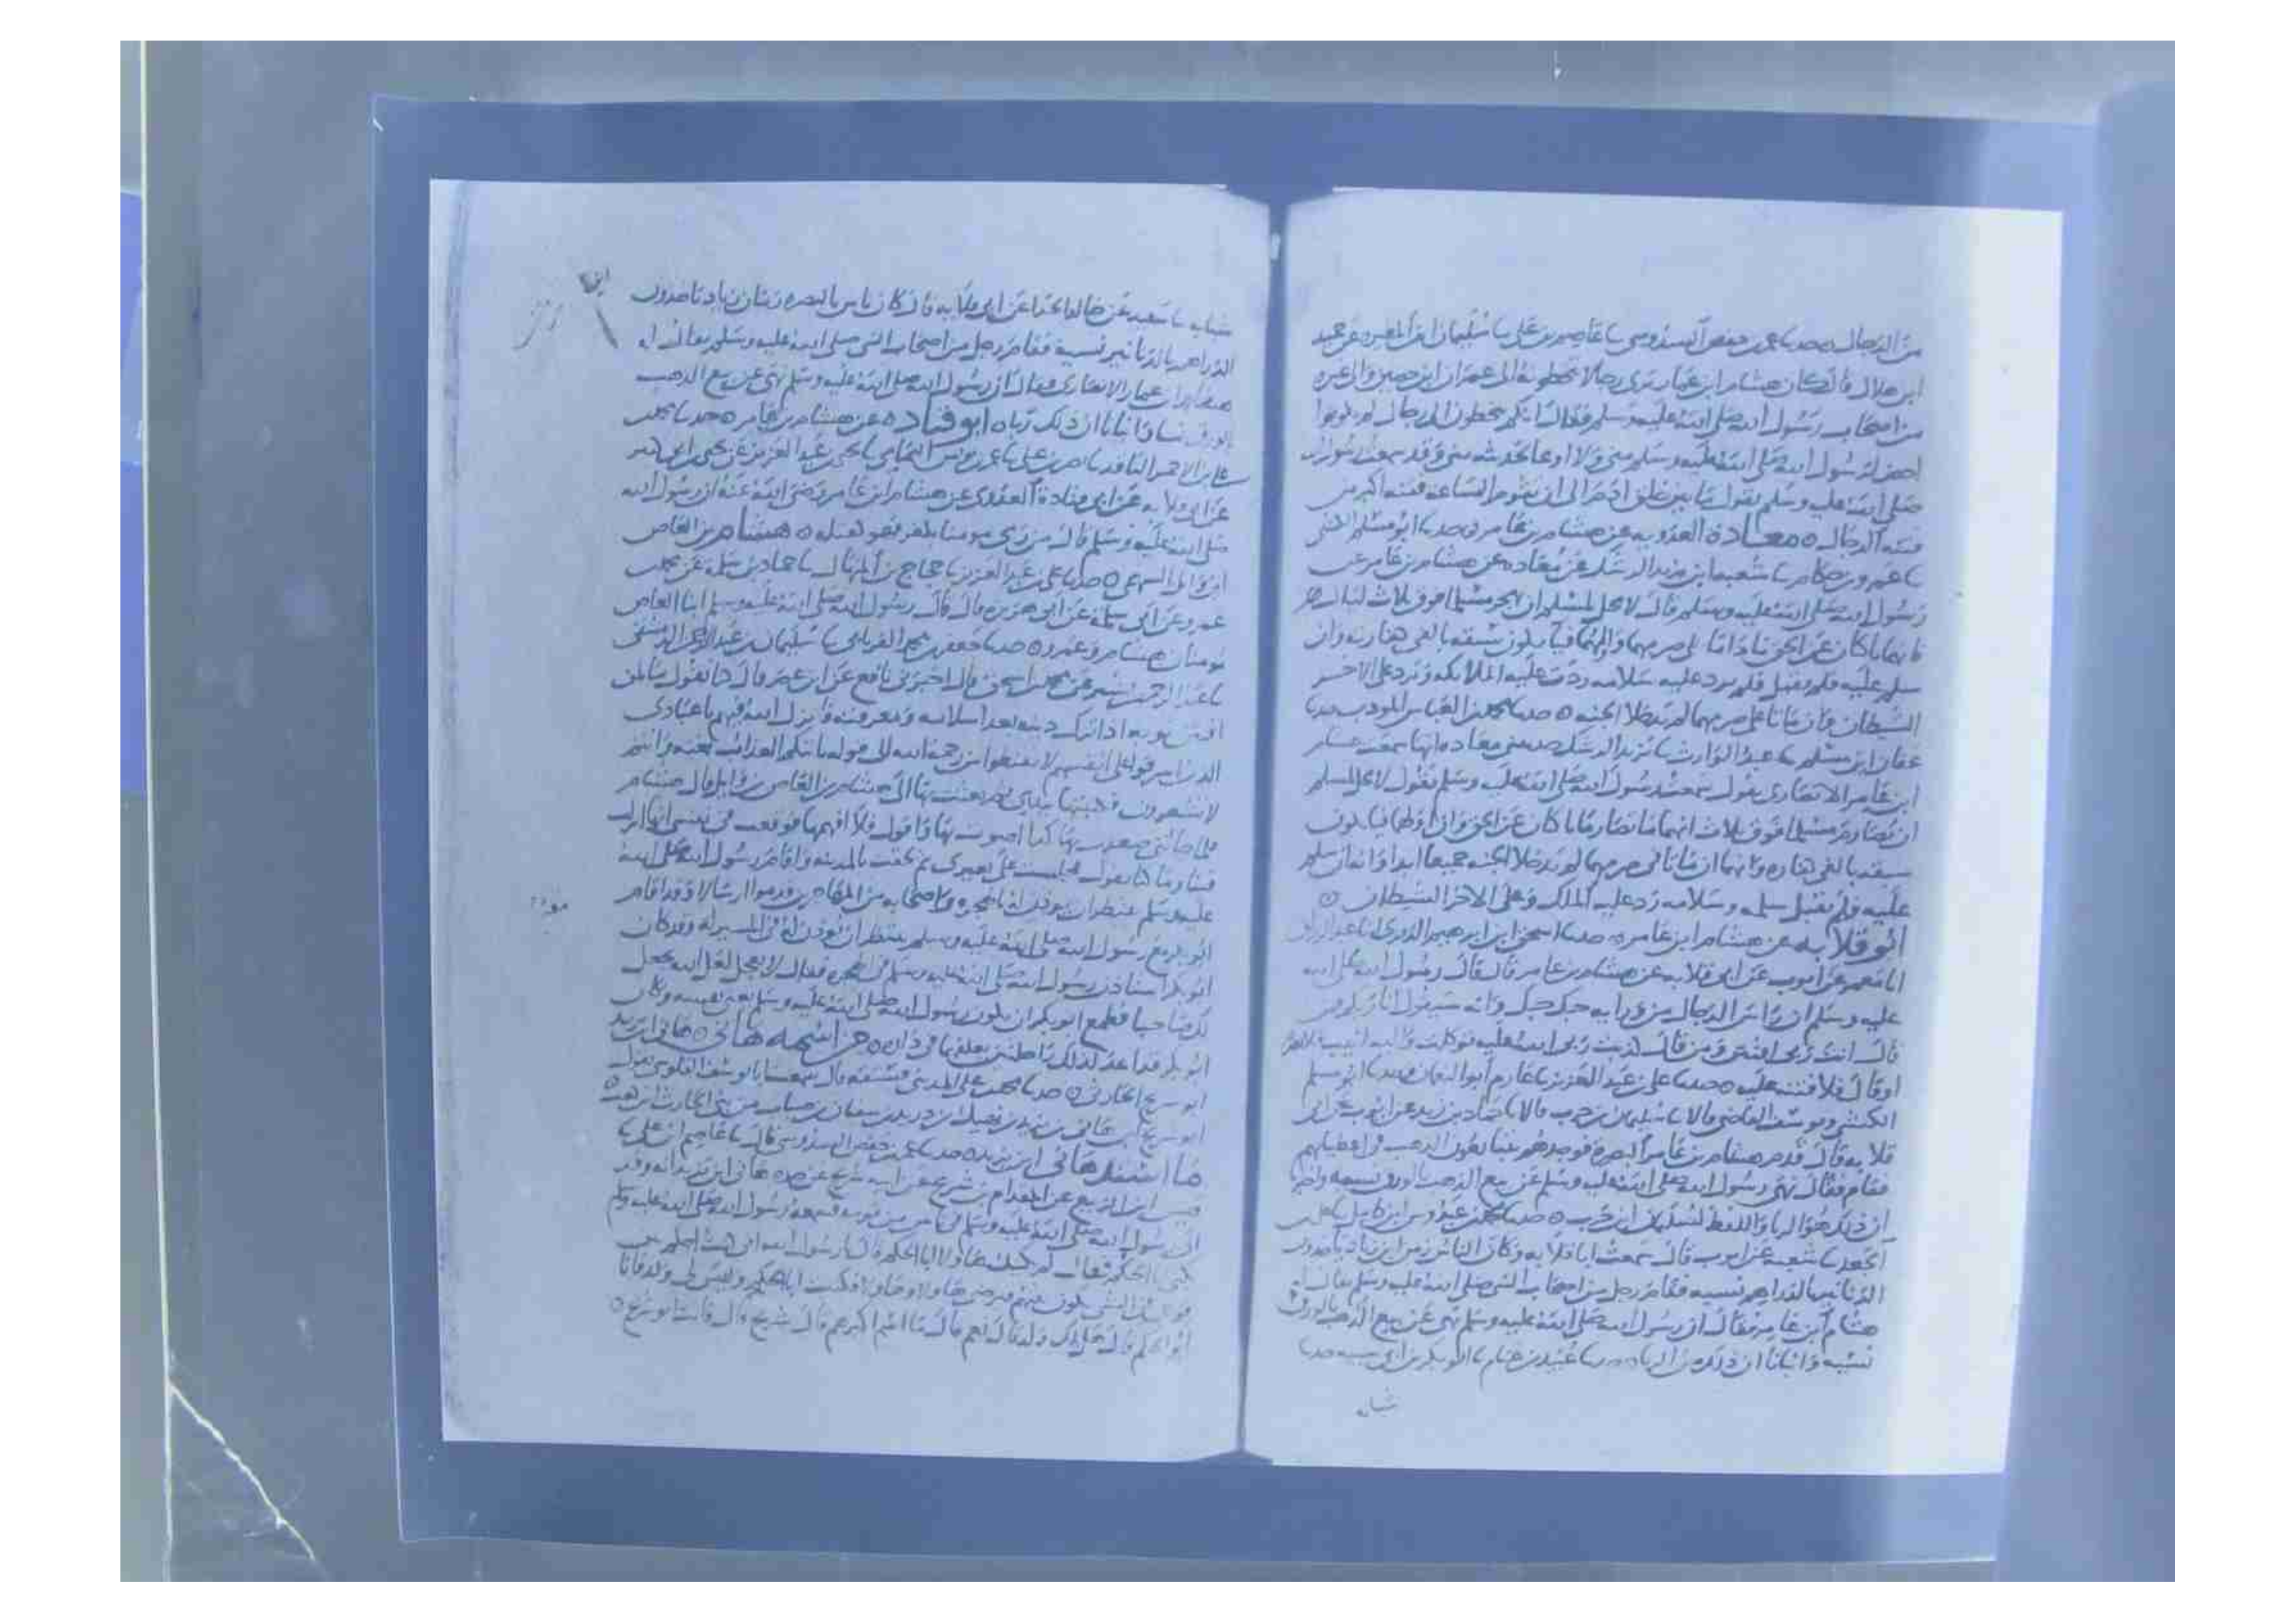 من الدجال ه حدثنا عمر بن حفص السدوسي ثنا عاصم بن علي ثنا سليمان ابن المغيره عن حميد
ابن هلال قال كان هشام ابن عامر يرى رجالا يتخطونه الى عمران ابن حصين والى غيره
من اصحاب رسول الله صلى الله عليه وسلم فقال انكم تتخطون الى رجال لم يكونوا
احضر لرسول الله صلى الله عليه وسلم مني ولا اوعا لحديثه مني وقد سمعت رسول الله
صلى الله عليه وسلم يقول ما بين خلق ادم الى ان تقوم الساعة فتنه اكبر من
فتنه الدجال ه معادة العدويه عن هشام بن عامر ه حدثنا ابو مسلم الكشي
ثنا عمرو بن حكام ثنا شعبه يزيد الرشك عن معاده عن هشام بن عامر عن
رسول الله صلى الله عليه وسلم قال لا يحل لمسلم ان يهجر مسلما فوق ثلاث ليال
فانهما ناكبان عن الحق ما داما على صرمهما واولهما فيا يكون سبقه بالفي كفارته وان
سلم عليه فلم يقبل فلم يرد عليه سلامه ردت عليه الملائكه ويرد على الاخر
الشيطان فان ماتا على صرمهما لم يدخلا الجنه ه حدثنا محمد بن العباس المودب حدثنا
عفان ابن مسلم ثنا عبد الوارث ثنا يزيد الرشك حدثتني معاده انها سمعت هشام
ابن عامر الانصاري يقول سمعت رسول الله صلى الله عليه وسلم يقول لا يحل لمسلم
ان يصارم مسلما فوق ثلاث انهما ما تصارما ناكبان عن الحق وان اولهما فيا يكون
سبقه بالفي كفاره وانهما ان ماتا على صرمهما لم يدخلا الجنه جميعا ابدا وانه ان سلم
عليه فلم يقبل سلمه وسلامه رد عليه الملك وعلى الاخر الشيطان ه
ابو قلابه عن هشام ابن عامر ه حدثنا اسحق ابن ابرهيم الدبري انا عبد الرزاق
انا معمر عن ايوب عن ابي قلابه عن هشام بن عامر قال قال رسول الله صلى الله
عليه وسلم ان راس الدجال من ورايه حبك حبك وانه سيقول انا ربكم فمن
قال انت ربي افتتن ومن قال كذبت ربي الله عليه توكلت واليه انيب فلا يضره
او قال فلا فتنه عليه ه حدثنا علي بن عبد العزيز ثنا عارم ابو النعمان وحدثنا ابو مسلم
الكشي ويوسف القاضي قالا ثنا سليمان بن حرب قالا ثنا حماد بن زيد عن ايوب عن ابي
قلابه قال قدم هشام بن عامر البصرة فوجدهم يتبايعون الذهب في اعطياتهم
فقام فقال نهى رسول الله صلى الله عليه وسلم عن بيع الذهب بالورق نسيه واخبرنا
ان ذلك هو الربا واللفظ لسليمان ابن حرب ه حدثنا محمد بن عبدوس ابن كامل ثنا علي بن
الجعد ثنا شعبه عن ايوب قال سمعت ابا قلابه وكان الناس زمن ابن زياد ياخذون
الدنانير بالدراهم نسيه فقام رجل من اصحاب النبي صلى الله عليه وسلم يقال له
هشام ابن عامر فقال ان رسول الله صلى الله عليه وسلم نهى عن بيع الذهب بالورق
نسيه وانبانا ان ذلك من الربا ه حدثنا عبيد بن غنام ثنا ابو بكر بن ابي شيبه حدثنا
شبابه
شبابه ثنا شعبه عن خالد الحذا عن ابي قلابه قال كان ناس بالبصره زمان زياد ياخذون
الدراهم بالدنانير نسيه فقام رجل من اصحاب النبي صلى الله عليه وسلم يقال له
هشام ابن عامر الانصاري فقال ان رسول الله صلى الله عليه وسلم نهى عن بيع الذهب
بالورق نسا وانبانا ان ذلك ربا ه ابو قتاده عن هشام بن عامر ه حدثنا محمد
ثنا عمر بن يونس اليمامي ثنا يحيى بن عبد العزيز عن يحيى ابن ابي كثير
عن ابي قلابه عن ابي قتادة العدوي عن هشام ابن عامر رضي الله عنه ان رسول الله
صلى الله عليه وسلم قال من رمى مومنا بكفر فهو كقتله ه هشام بن العاص
ابن وايل السهمي ه حدثنا علي بن عبد العزيز ثنا حجاج بن المنهال ثنا حماد بن سلمة عن محمد بن
عمرو عن ابي سلمة عن ابي هريره قال قال رسول الله صلى الله عليه وسلم ابنا العاص
مومنان هشام وعمرو ه حدثنا جعفر بن محمد الفريابي ثنا سليمان بن عبد الرحمن الدمشقي
ثنا عبد الرحمن بن بشير عن محمد بن اسحق قال اخبرني نافع عن ابن عمر قال كنا نقول ما لمن
افتتن توبه اذا ترك دينه بعد اسلامه ومعرفته فانزل الله فيهم يا عبادي
الذين اسرفوا على انفسهم لا تقنطوا من رحمة الله الى قوله ياتيكم العذاب بغته وانتم
لا تشعرون فكتبتها بيدي ثم بعثت بها الى هشام بن العاص بن وايل قال هشام
فلما جاتني صعدت بها كدا اصوت بها واقول فلا افهمها فوقعت في نفسي انها انزلت
فينا وما كنا نقول فجلست على بعيري ثم لحقت بالمدينه واقام رسول الله صلى الله
عليه وسلم ينتظر ان يوذن له في الهجره واصحابه من المهاجرين قدموا ارسالا وقد اقام
ابو بكر مع رسول الله صلى الله عليه وسلم ينتظر ان يوذن له في المسير له وقد كان
ابو بكر استاذن رسول الله صلى الله عليه وسلم في الهجره فقال لا تعجل لعل الله يجعل
لك صاحبا فطمع ابو بكر ان يكون رسول الله صلى الله عليه وسلم يعني نفسه وكان
ابو بكر قد اعد لذلك راحلتين يعلفهما في داره ه من اسمه هاني ه هاني ابن يزيد
ابو شريح الحارثي ه حدثنا محمد بن علي المديني فستقه قال سمعت ابا يوسف القلوسي يقول
ابو شريح هاني بن يزيد بن نهيك ابن دريد بن سفيان بن ضباب من بني الحارث ابن كعب ه
ما اسند هاني ابن يزيد ه حدثنا عمر بن حفص السدوسي قال ثنا عاصم ابن علي ثنا
قيس ابن الربيع عن المقدام بن شريح عن ابيه شريح عن جده هاني ابن يزيد انه وفد
الى رسول الله صلى الله عليه وسلم في ناس من قومه فسمعه رسول الله صلى الله عليه وسلم
يكنى ابا الحكم فقال لم يكنك هاولا ابا الحكم قال يا رسول الله
ابو الحكم قال هل لك ولد قال نعم قال ما اسم اكبرهم قال شريح قال فانت ابو شريح ه